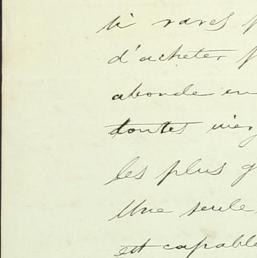 si rares
d'acheter
abonde en
toutes
les plus
Une seule
est capable